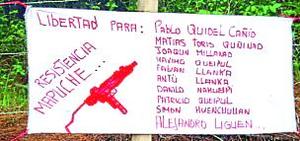 LIBERTAD PARA: PABLO QUIDEL CAÑIO
MATIAS TORIS QUIÑINAO
JOAQUIN MILLANAO
MAXIMO QUEIPUL
FABIAN LLANKA
ANTÜ LLANKA
DANILO NAHUELPI
PATRICIO QUEIPUL
SIMON HUENCHULLAN
ALEJANDRO LIGUEN...
RESISTENCIA
MAPUCHE...